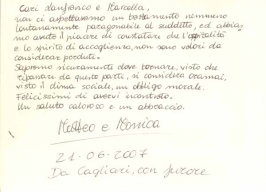 Cari Gianfranco e Marcella,
non ci aspettavamo un trattamento nemmeno
lontanamente paragonabile al suddetto, ed abbia-
mo avuto il piacere di constatare che l'ospitalità
e lo spirito di accoglienza, non sono valori da
considerare perduti.
Sapremo sicuramente dove tornare, visto che
ripassare da queste parti, si considera oramai,
visto il clima sociale, un obbligo morale.
Felicissimi di avervi incontrato.
Un saluto caloroso e un abbraccio.
Matteo e Monica
21-06-2007
Da Cagliari, con furore.